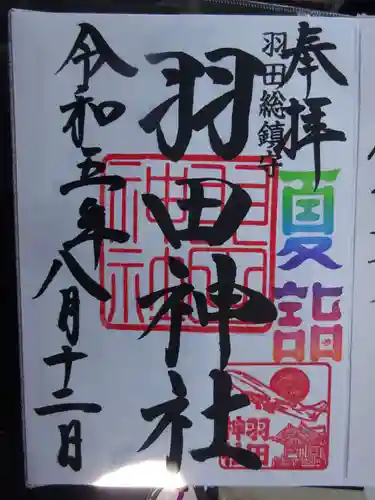 奉拝
羽田総鎮守
夏詣
羽田神社
羽田
神社
令和五年八月十二日
羽田
神社